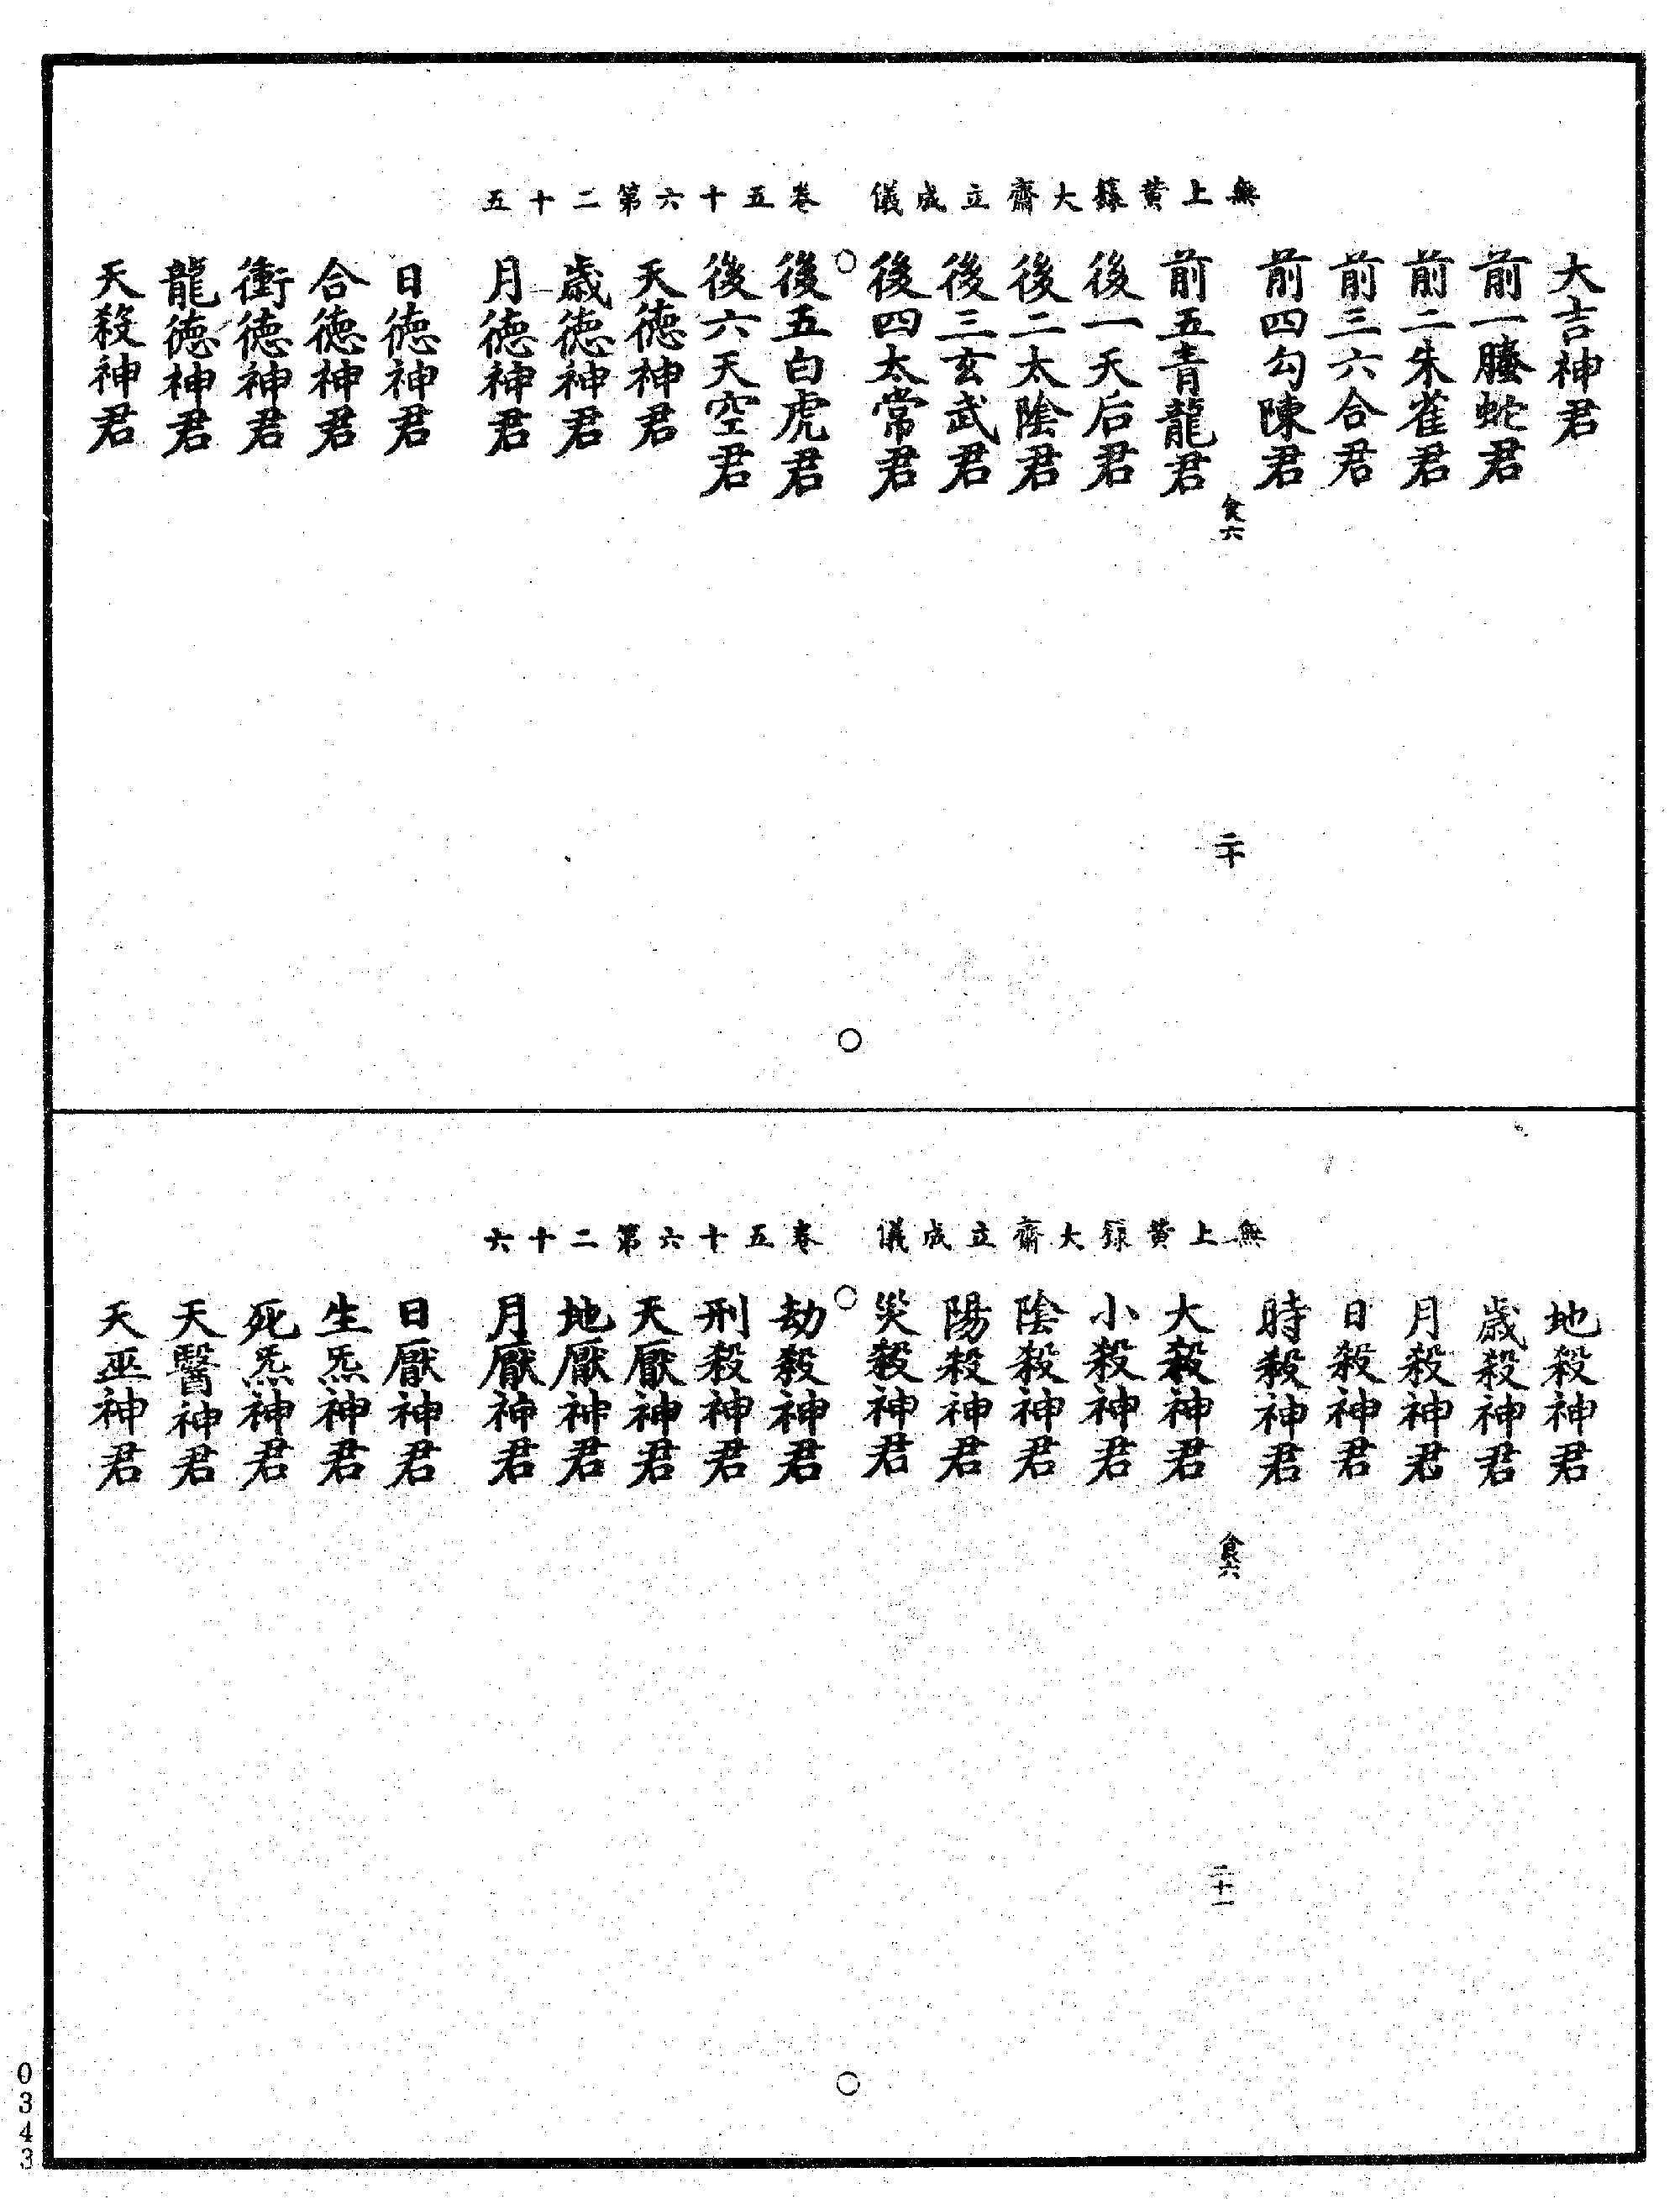 無上黃籙大齋立成儀　卷五十六第二十五
大吉神君
前一螣蛇君
前二朱雀君
前三六合君
前四勾陳君
食六
二十
前五青龍君
後一天后君
後二太陰君
後三玄武君
後四太常君
後五白虎君
後六天空君
天德神君
歲德神君
月德神君
日德神君
合德神君
衝德神君
龍德神君
天殺神君
無上黃籙大齋立成儀　卷五十六第二十六
地殺神君
歲殺神君
月殺神君
日殺神君
時殺神君
食六
二十一
大殺神君
小殺神君
陰殺神君
陽殺神君
災殺神君
劫殺神君
刑殺神君
天厭神君
地厭神君
月厭神君
日厭神君
生炁神君
死炁神君
天醫神君
天巫神君
0343